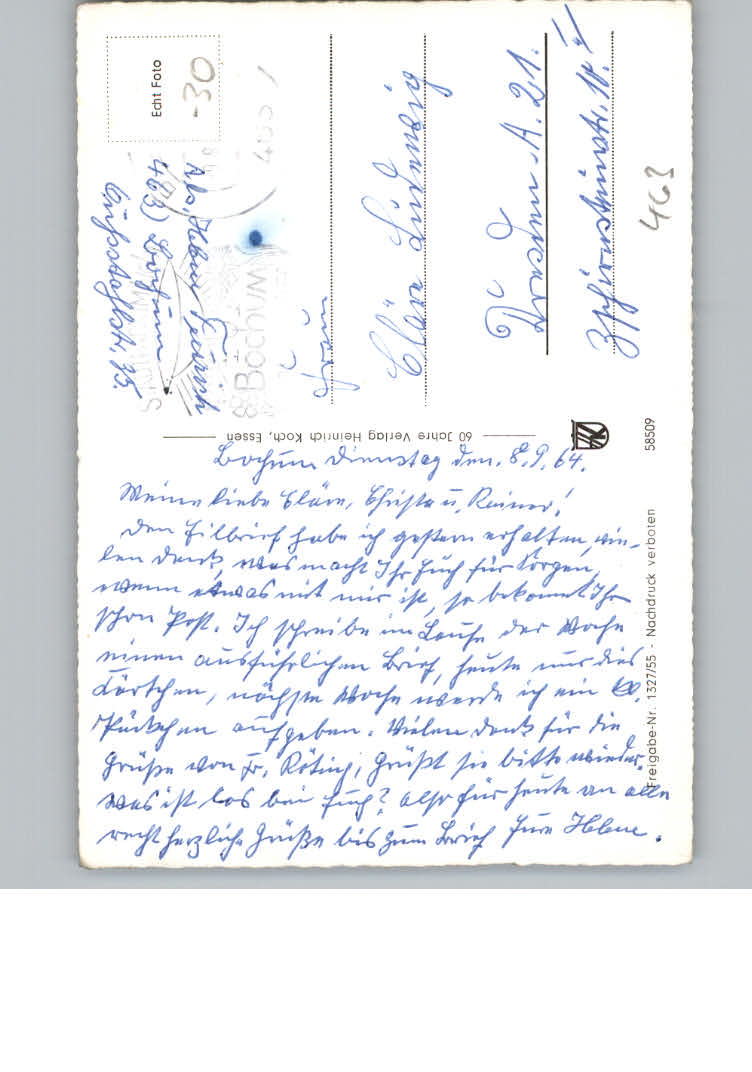 Bochum Dienstag den. 8.9.64.
Meine liebe Kläre, Christa u. Reiner!
Den Eilbrief habe ich gestern erhalten, vie-
len Dank, was macht Ihr Euch für Sorgen,
wenn etwas mit mir ist, so bekommt Ihr
schon Post. Ich schreibe im Laufe der Woche
einen ausführlichen Brief, heute nur dies
Kärtchen, nächste Woche werde ich ein kl.
Päckchen aufgeben. Vielen Dank für die
Grüße von Fr. Rötig, Grüßt sie bitte wieder.
Was ist los bei Euch? Also für heute an alle
recht herzliche Grüße bis zum Brief Eure
Echt Foto
-30
Abs.
463) Bochum
Gußstahlstr. 35.
BOCHUM
Frau
Kläre Ludewig
Dresden A. 21.
463
60 Jahre Verlag Heinrich Koch, Essen
58509
Freigabe-Nr. 1327/55 - Nachdruck verboten